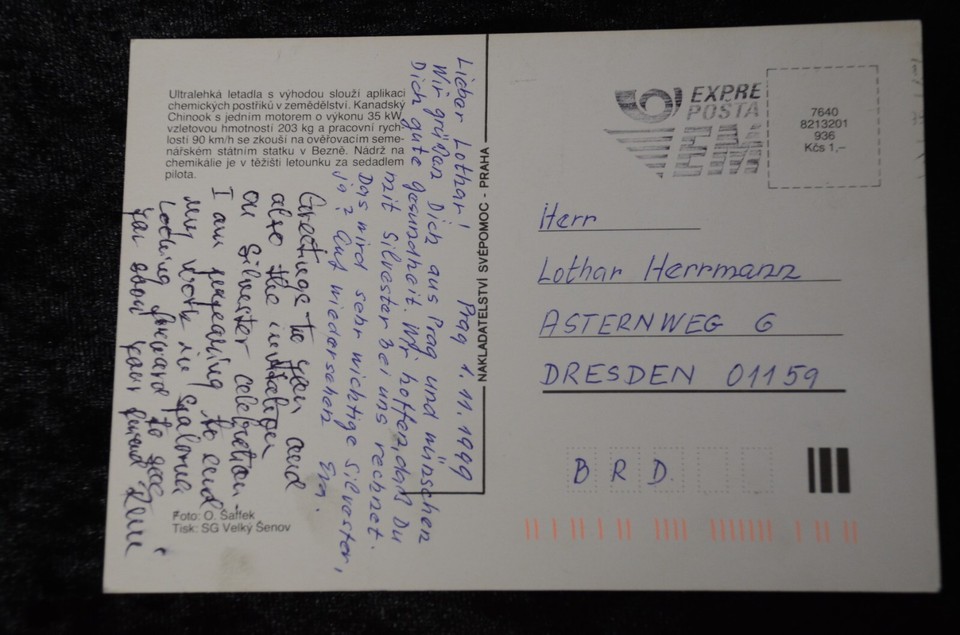 Ultralehká letadla s výhodou slouží aplikaci
chemických postřiků v zemědělství. Kanadský
Chinook s jedním motorem o výkonu 35 kW,
vzletovou hmotností 203 kg a pracovní rych-
lostí 90 km/h se zkouší na ověřovacím seme-
nářském státním statku v Bezně. Nádrž na
chemikálie je v těžišti letounku za sedadlem
pilota.
Lieber Lothar! Prag 1.11.1999
Wir grüßen Dich aus Prag und wünschen
Dich gute gesundheit. Wir hoffen, daß Du
mit Silvester bei uns rechnet.
Das wird sehr wichtige silvester,
ja? Auf wiedersehen Eva.
Greetings to you and
also the
on Silvester celebration.
I am preparing to end
my work in
Looking forward to see
you soon your friend
Foto: O. Šaffek
Tisk: SG Velký Šenov
NAKLADATELSTVÍ SVÉPOMOC - PRAHA
EXPRE
POSTA
EM
7640
8213201
936
Kčs 1,–
Herr
Lothar Herrmann
ASTERNWEG 6
DRESDEN 01159
B R D.